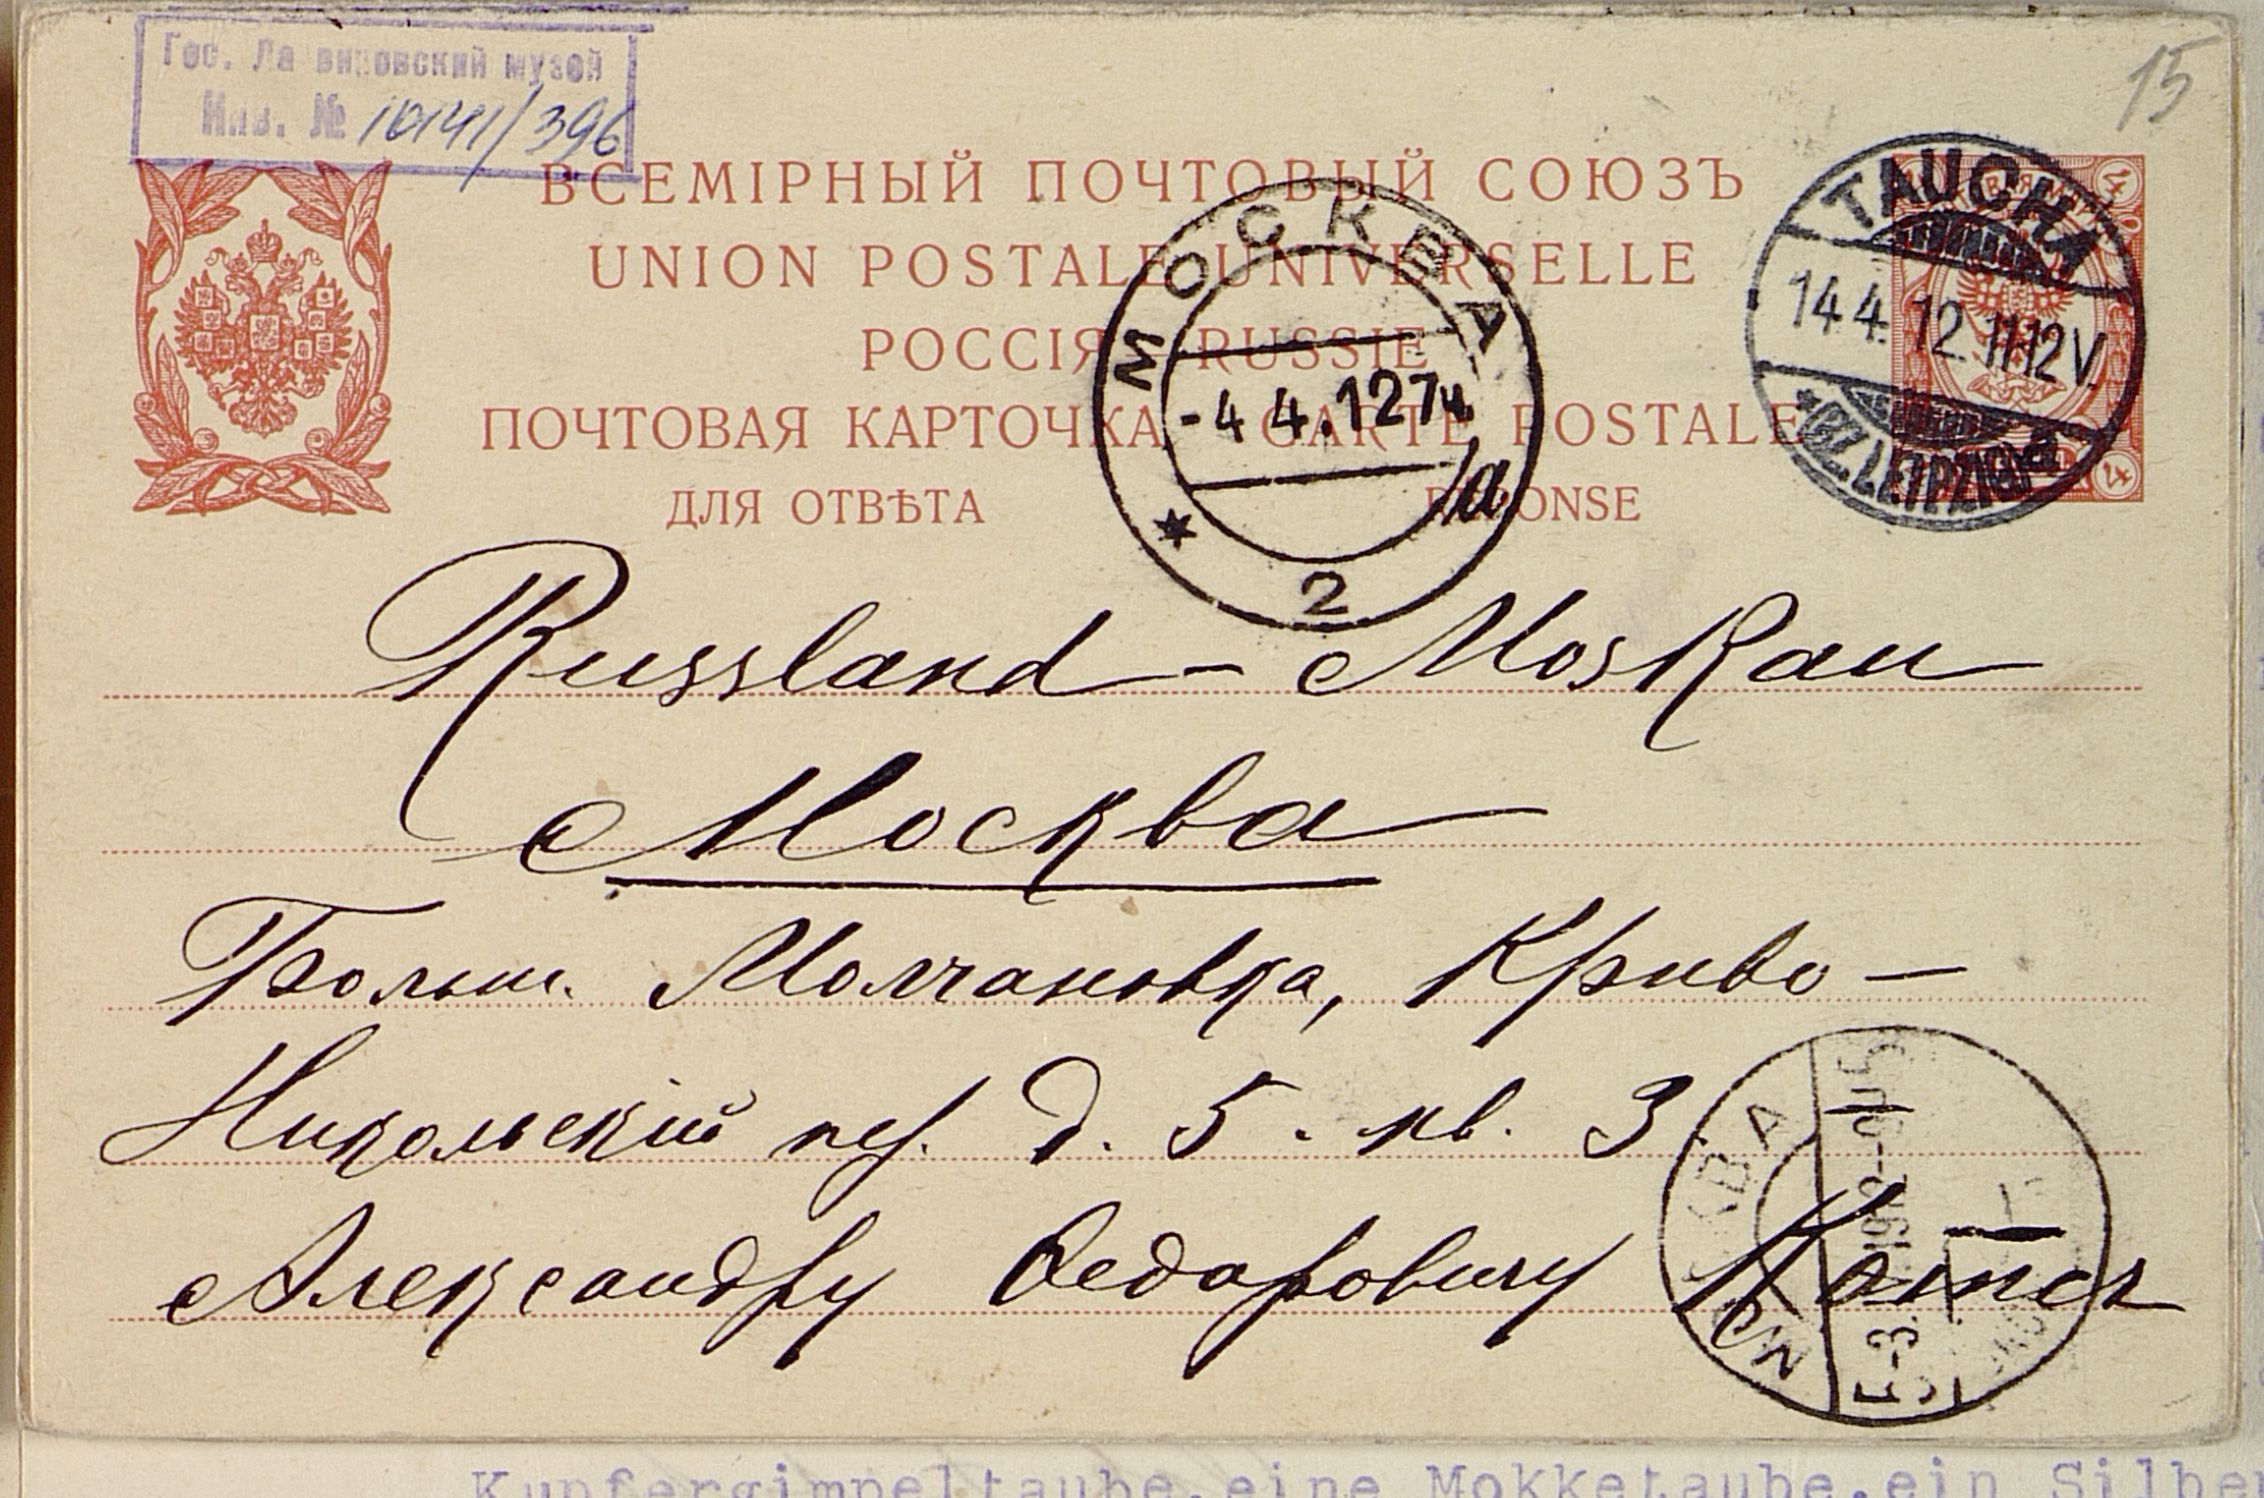 Гос. Да виновский музей
Инв. № 10141/396
15
ВСЕМІРНЫЙ ПОЧТОВЫЙ СОЮЗЪ
UNION POSTALE UNIVERSELLE
РОССІЯ RUSSIE
ПОЧТОВАЯ КАРТОЧКА CARTE POSTALE
ДЛЯ ОТВѢТА RÉPONSE
МОСКВА
-4 4.12 7ч.
a
2
TAUCHA
14 4. 12. 11-12V.
*(BZ. LEIPZIG) a
4
4
Russland - Moskau
Москва
Больш. Молчановка, Криво-
Никольскій пер. д. 5. кв. 3
Александру Федоровичу Котсъ
МОСКВА
-3. 1912
Kupfergimpeltaube, eine Mokketaube, ein Silber